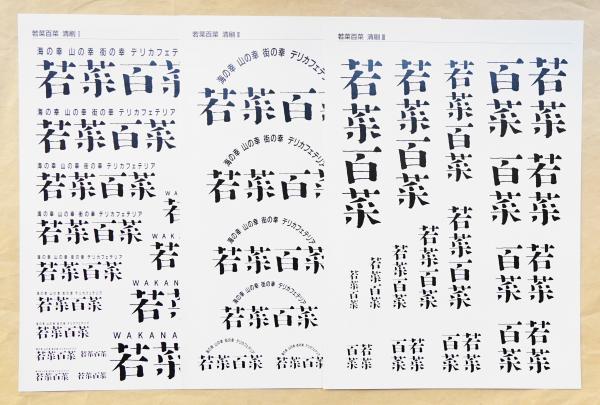 若菜百菜 清刷 Ⅰ
海の幸 山の幸 街の幸 デリカフェテ
若菜百菜
海の幸 山の幸 街の幸 デリカフェテリア
若菜百菜
海の幸 山の幸 街の幸 デリカフェテリア
若菜百菜
海の幸 山の幸 街の幸 デリカフェテリア
若菜百菜
海の幸 山の幸 街の幸 デリカフェテリア
若菜百菜
海の幸 山の幸 街の幸 デリカフェテリア
若菜百菜
若菜百菜
若菜百菜
若菜百菜
若菜百菜
若菜百菜
WA
若
WAK
若
WAKAN
若菜
WAKANA
若菜
若菜百菜 清刷 Ⅱ
海の幸 山の幸 街の幸 デリカフェ
若菜百
海の幸 山の幸 街の幸 デリカフェテリア
若菜百菜
海の幸 山の幸 街の幸 デリカフェテリア
若菜百菜
海の幸 山の幸 街の幸 デリカフェテリア
若菜百菜
若菜百菜
若菜百菜
若菜百菜 清刷 Ⅲ
若菜百菜
若菜百菜
若菜百菜
若菜
百菜
若菜
百菜
若菜百菜
若菜百菜
若菜百菜
若菜百菜
若菜
百菜
若菜
百菜
若菜
百菜
若菜
百菜
若菜
百菜